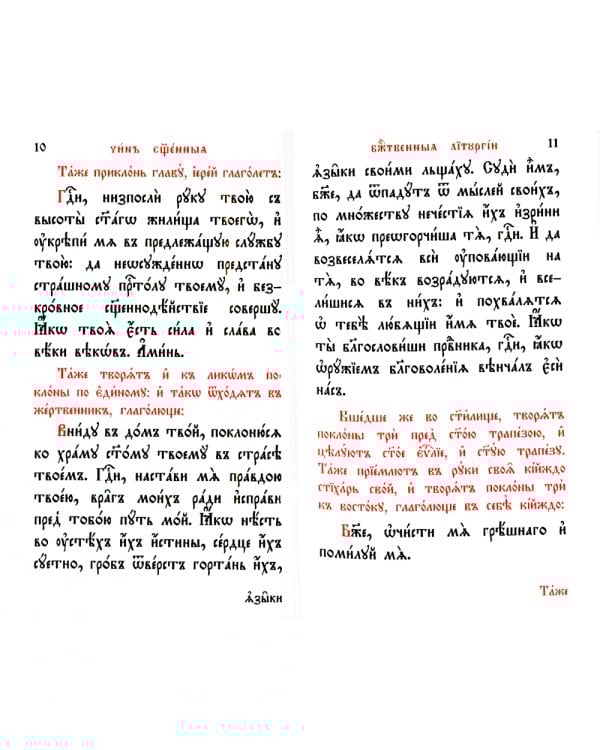 10 чи́нъ сщ҃е́нныѧ
Та́же прикло́нь главꙋ̀, і҆ере́й глаго́летъ:
Гдⷭ҇и, низпослѝ рꙋ́кꙋ твою̀ съ
высоты̀ ст҃а́гѡ жили́ща твоегѡ̀, и҆
ᲂу҆крѣпи́ мѧ въ предлежа́щꙋю слꙋ́жбꙋ
твою̀: да неѡсꙋжде́ннѡ предста́нꙋ
стра́шномꙋ прⷭ҇то́лꙋ твоемꙋ̀, и҆ без-
кро́вное сщ҃еннодѣ́йствіе совершꙋ̀.
Ꙗ҆́кѡ твоѧ̀ є҆́сть си́ла и҆ сла́ва во
вѣ́ки вѣкѡ́въ. А҆ми́нь.
Та́же творѧ́тъ и҆ къ ликѡ́мъ по-
кло́ны по є҆ди́номꙋ: и҆ та́кѡ ѿхо́дѧтъ въ
же́ртвенникъ, глаго́люще:
Вни́дꙋ въ до́мъ тво́й, поклоню́сѧ
ко хра́мꙋ ст҃о́мꙋ твоемꙋ̀ въ стра́сѣ
твое́мъ. Гдⷭ҇и, наста́ви мѧ̀ пра́вдою
твое́ю, вра̑гъ мои́хъ ра́ди и҆спра́ви
пред̾ тобо́ю пꙋ́ть мо́й. Ꙗ҆́кѡ нѣ́сть
во ᲂу҆стѣ́хъ и҆́хъ и҆́стины, се́рдце и҆́хъ
сꙋ́етно, гро́бъ ѿве́рстъ горта́нь и҆́хъ,
ѧ҆зы̑ки
бжⷭ҇твенныѧ літꙋргі́и 11
ѧ҆зы̑ки свои́ми льща́хꙋ. Сꙋдѝ и҆̀мъ,
бж҃е, да ѿпадꙋ́тъ ѿ мы́слей свои́хъ,
по мно́жествꙋ нече́стїѧ и҆́хъ и҆зри́ни
ѧ҆̀, ꙗ҆́кѡ преѡгорчи́ша тѧ̀, гдⷭ҇и. И҆ да
возвеселѧ́тсѧ всѝ ᲂу҆пова́ющіи на
тѧ̀, во вѣ́къ возра́дꙋютсѧ, и҆ все-
ли́шисѧ въ ни́хъ: и҆ похва́лѧтсѧ
ѡ҆ тебѣ̀ лю́бѧщіи и҆́мѧ твоѐ. Ꙗ҆́кѡ
ты̀ благослови́ши првⷣника, гдⷭ҇и, ꙗ҆́кѡ
ѡ҆рꙋ́жїемъ бл҃говоле́нїѧ вѣнча́лъ є҆сѝ
на́съ.
Вше́дше же во ст҃и́лище, творѧ́тъ
покло́ны трѝ пред̾ ст҃о́ю трапе́зою, и҆
цѣлꙋ́ютъ ст҃о́е є҆ѵⷢ҇лїе, и҆ ст҃ꙋ́ю трапе́зꙋ.
Та́же прїе́млютъ въ рꙋ́ки своѧ̑ кі́йждо
стїха́рь сво́й, и҆ творѧ́тъ покло́ны трѝ
къ восто́кꙋ, глаго́люще въ себѣ̀ кі́йждо:
Бж҃е, ѡ҆чи́сти мѧ̀ грѣ́шнаго и҆
поми́лꙋй мѧ̀.
Та́же